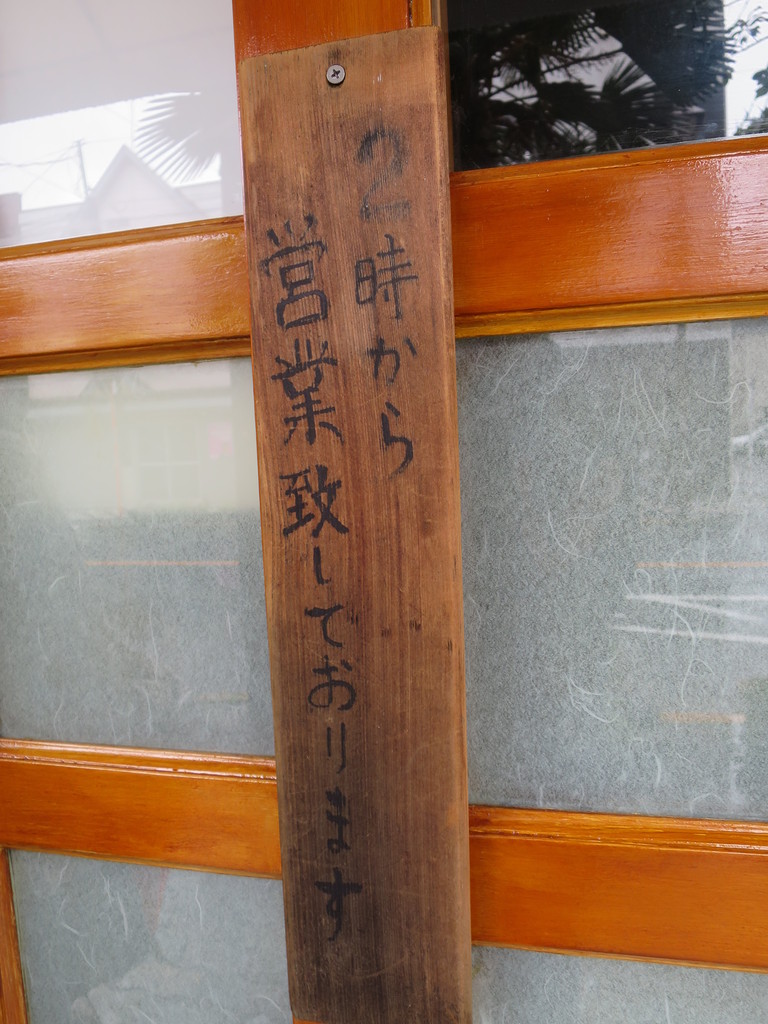 2時から
営業致しております